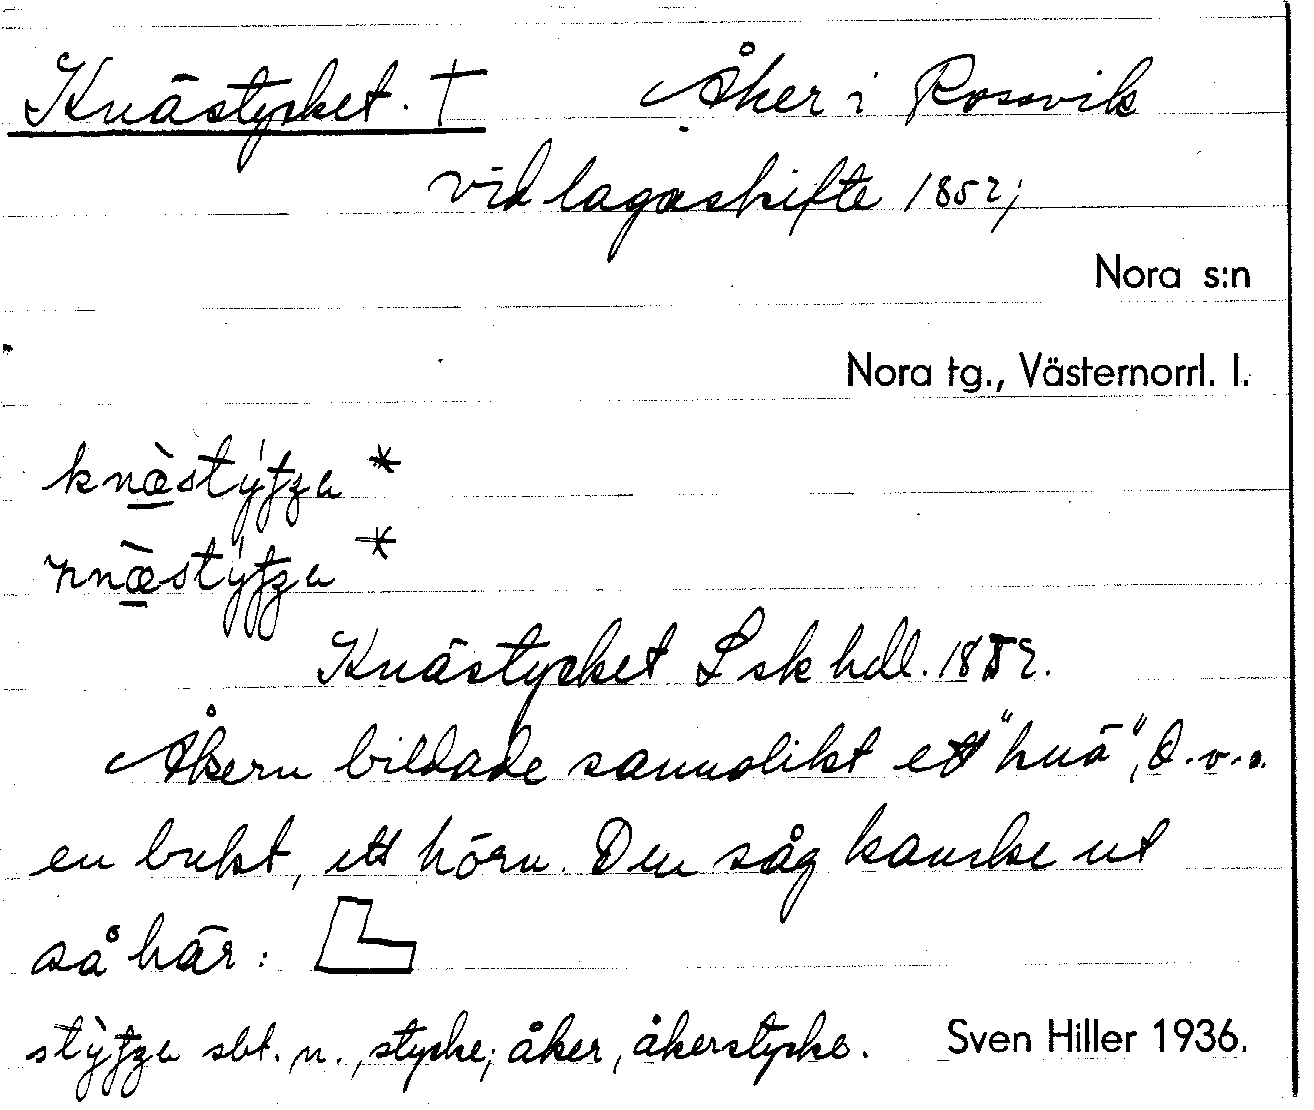 Knästycket. † Åker i Rossvik
vid lagaskifte 1852;
Nora s:n
Nora tg., Västernorrl. l.
Knästycket Lsk hdl. 1852.
Åkern bildade sannolikt ett "knä", d.v.s.
en bukt, ett hörn. Den såg kanske ut
så här:
sbt. n., stycke; åker, åkerstycke. Sven Hiller 1936.